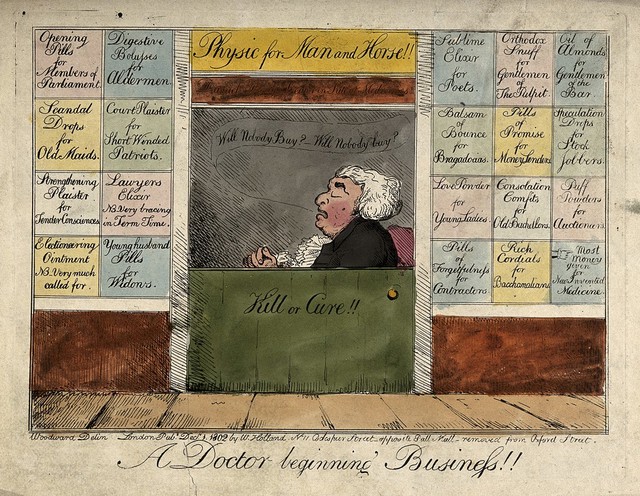 Physic for Man and Horse!!
Will Nobody Buy? – Will Nobody buy?
Kill or Cure!!
Opening
Pills
for
Members of
Parliament.
Digestive
Bolusses
for
Aldermen.
Scandal
Drops
for
Old Maids.
Court Plaister
for
Short Winded
Patriots.
Strengthening
Plaister
for
Tender Consciences.
Lawyers
Elixir
NB. Very bracing
in Term Time.
Electioneering
Ointment
NB. Very much
called for.
Young husband
Pills
for
Widows.
Sublime
Elixir
for
Poets.
Orthodox
Snuff
for
Gentlemen
of
The Pulpit.
Oil of
Almonds
for
Gentlemen
of the
Bar.
Balsam
of
Bounce
for
Bragadocias.
Pills
of
Promise
for
Money Lenders
Speculation
Drops
for
Stock
jobbers.
Love Powder
for
Young Ladies.
Consolation
Comfits
for
Old Batchellors.
Puff
Powders
for
Auctioneers.
Pills
of
Forgetfulness
for
Contractors
Rich
Cordials
for
Bacchanalians
Most
money
given
for
New invented
Medicine.
Woodward Delin London Pub. Dec. 1, 1802 by W. Holland, No 11 Cockspur Street, opposite Pall Mall – removed from Oxford Street.
A Doctor beginning Business!!